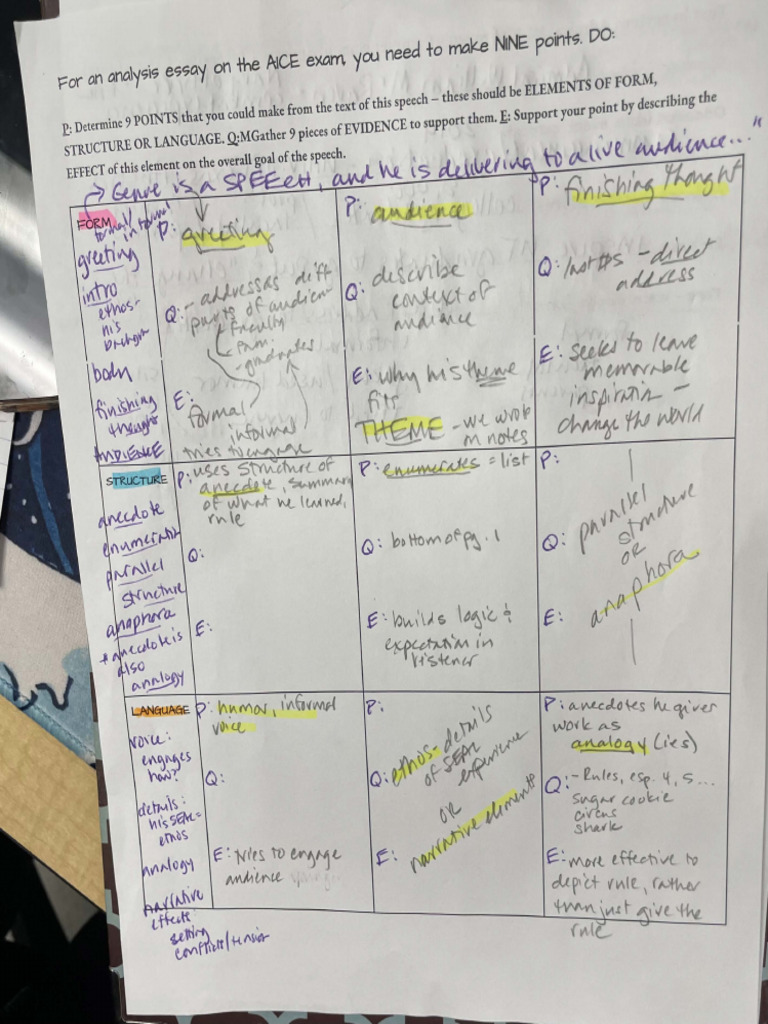 For an analysis essay on the AICE exam, you need to make NINE points. DO:
P: Determine 9 POINTS that you could make from the text of this speech – these should be ELEMENTS OF FORM,
STRUCTURE OR LANGUAGE. Q:MGather 9 pieces of EVIDENCE to support them. E: Support your point by describing the
EFFECT of this element on the overall goal of the speech.
→ Genre is a SPEEcH, and he is delivering to a live audience..."
FORM
formal/
informal
greeting
intro
ethos-
his
body
finishing
thought
AUDIENCE
P: greeting
Q: - addresses diff
parts of audien
faculty
fam.
- graduates
E:
formal
informal
tries to engage
P: audience
Q: describe
context of
audiance
E: why his theme
fits
THEME - we wrote
in notes
P: finishing thought
Q: last ¶s - direct
address
E: seeks to leave
memorable
inspiration -
change the world
STRUCTURE
anecdote
enumeration
parallel
structure
anaphora
+ anecdote is
also
analogy
P: uses structure of
anecdote, summary
of what he learned,
rule
Q:
E:
P: enumerates = list
Q: bottom of pg. 1
E: builds logic &
expectation in
listener
P:
Q:
E:
parallel
structure
OR
anaphora
LANGUAGE
voice:
engages
how?
details:
his SEAL =
ethos
analogy
narrative
effects:
setting
conflicts/tension
P: humor, informal
voice
Q:
E: tries to engage
audience
P:
Q: ethos - details
of SEAL
experience
OR
narrative elements
E:
P: anecdotes he gives
work as
analogy (ies)
Q: - Rules, esp. 4, 5...
sugar cookie
circus
shark
E: more effective to
depict rule, rather
than just give the
rule